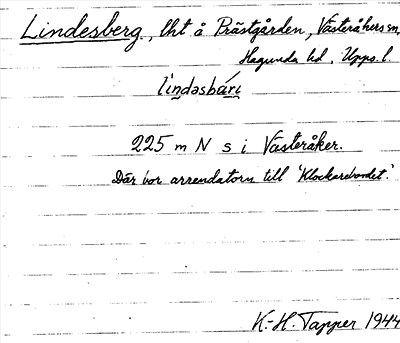 Lindesberg, lht å Prästgården, Västeråkers sn,
Hagunda hd, Upps. l.
li̱ndəsbári̱
225 m N s i Västeråker.
Där bor arrendatorn till 'Klockarebordet'.
K.-H. Tapper 1944